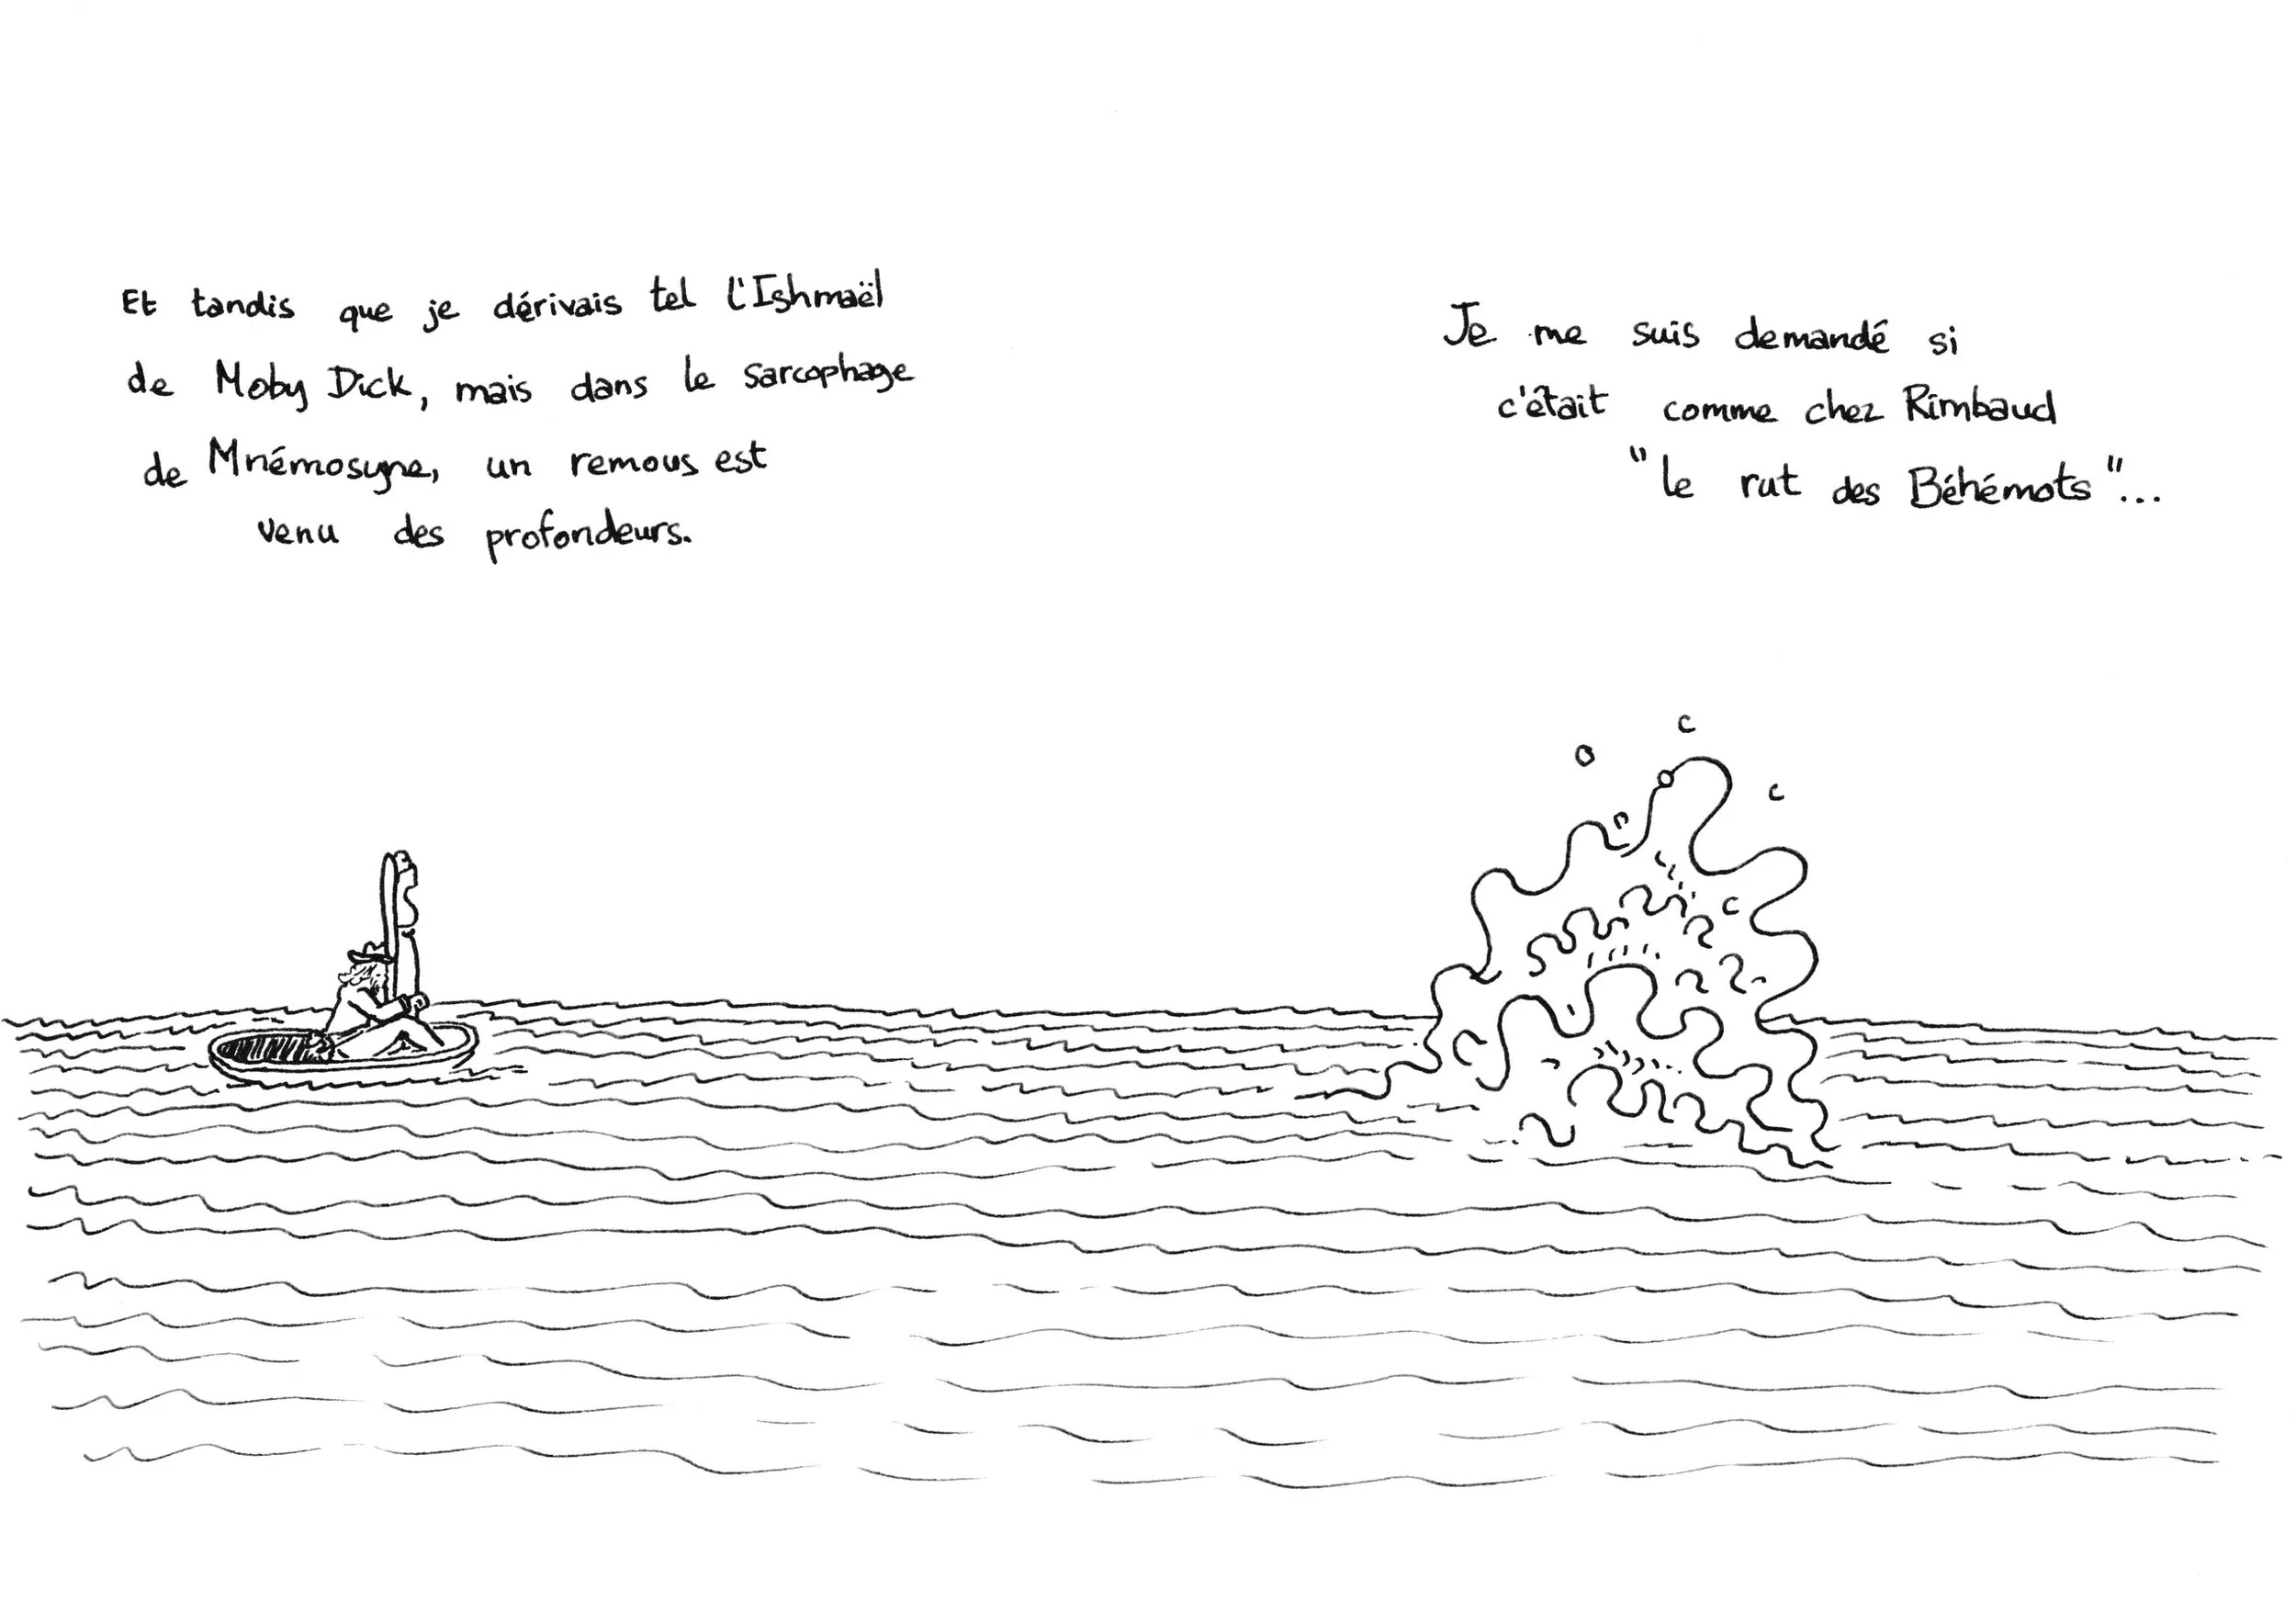 Et tandis que je dérivais tel l'Ishmaël
de Moby Dick, mais dans le sarcophage
de Mnémosyne, un remous est
venu des profondeurs.
Je me suis demandé si
c'était comme chez Rimbaud
"le rut des Béhémots"...